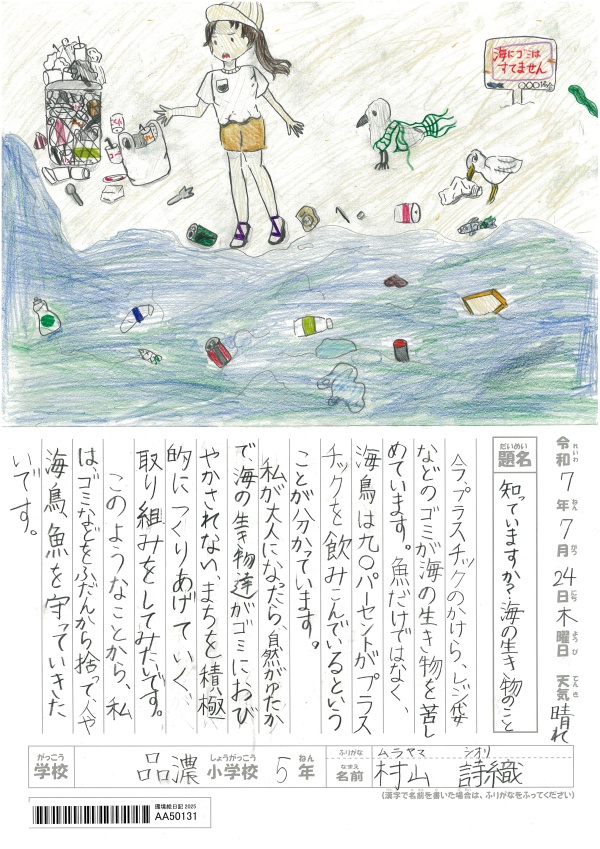 海にゴミは
すてません
令和7年7月24日木曜日 天気 晴れ
れいわ ねん がつ にち ようび てんき
だいめい
題名
知っていますか?海の生き物のこと
今、プラスチックのかけら、レジ袋
などのゴミが海の生き物を苦し
めています。魚だけではなく、
海鳥は九〇パーセントがプラス
チックを飲みこんでいるという
ことが分かっています。
私が大人になったら、自然がゆたか
で海の生き物達がゴミにおび
やかされない、まちを積極
的につくりあげていく、
取り組みをしてみたいです。
このようなことから、私
は、ゴミなどをふだんから捨って、人や
海鳥、魚を守っていきた
いです。
がっこう しょうがっこう ねん
学校 品濃 小学校 5年
ふりがな ムラヤマ シオリ
なまえ
名前 村山 詩織
(漢字で名前を書いた場合は、ふりがなをふってください)
環境絵日記 2025
AA50131